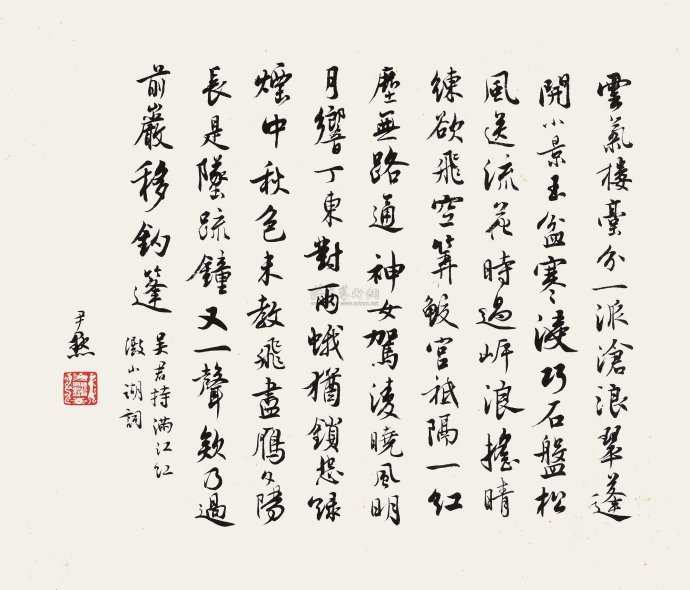 雲氣樓臺分一派滄浪翠蓬
開小景玉盆寒浸巧石盤松
風送流花時過岸浪搖晴
練欲飛空算鮫宮祗隔一紅
塵無路通 神女駕凌曉風明
月響丁東對兩蛾猶鎖怨綠
煙中秋色未教飛盡雁夕陽
長是墜疏鐘又一聲欸乃過
前巖移釣篷
吳君持滿江紅
澱山湖詞
尹默